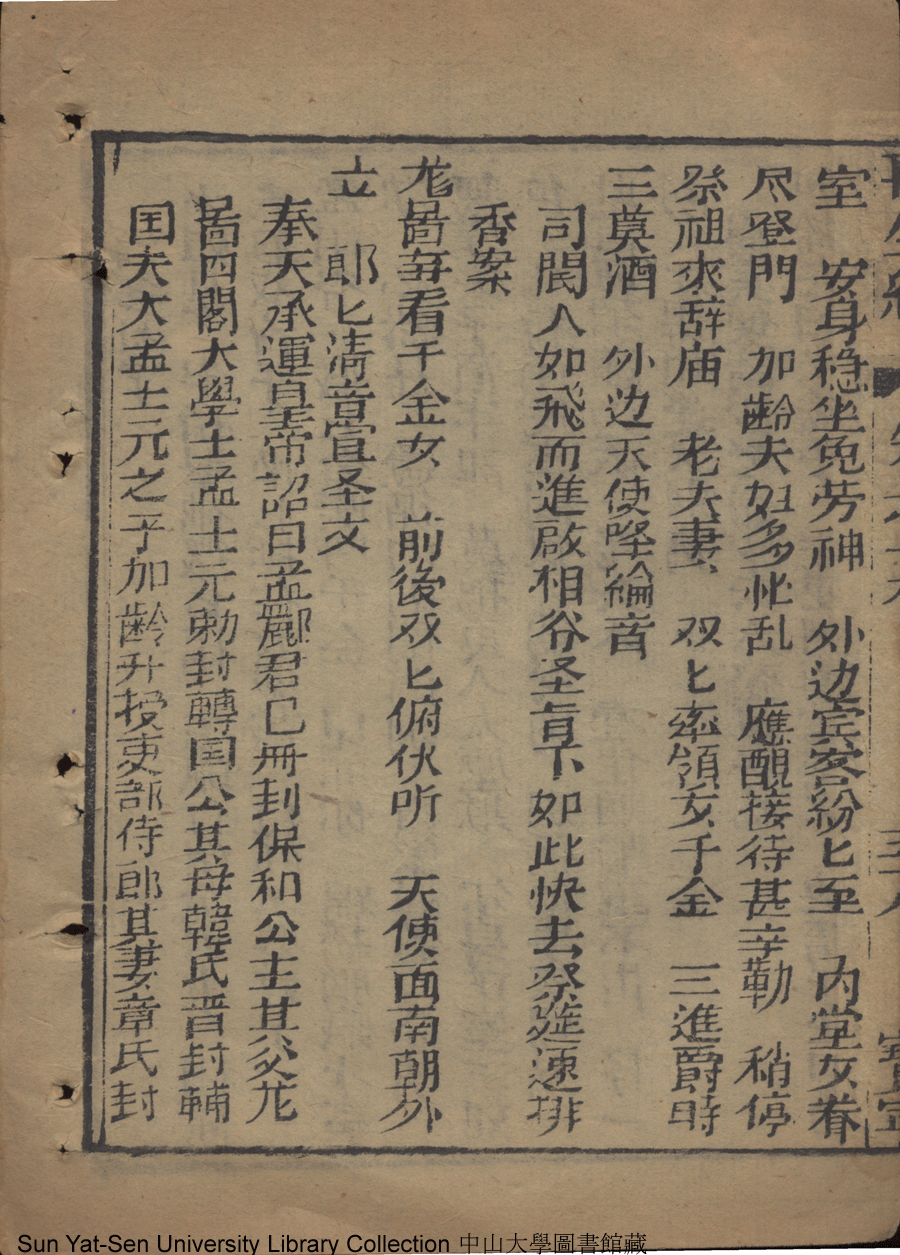 室　安身稳坐免劳神　外边宾客紛匕至　内堂女眷
尽登門　加齡夫妇多忙乱　應酬接待甚辛勤　稍停
祭祖來辞庙　老夫妻　双匕率領女千金　三進爵時
三奠酒　外边天使降綸音
司閽人如飛而進啟相爷圣旨下如此快去祭筵速排
香案
龙啚每看千金女　前後双匕俯伏听　天使面南朝外
立　郎匕清音宣圣文
奉天承運皇帝詔曰孟麗君已冊封保和公主其父龙
啚四閣大學士孟士元勅封轉国公其母韓氏晋封輔
国夫大孟士元之子加齡升授吏部侍郎其妻章氏封
Sun Yat-Sen University Library Collection 中山大學圖書館藏